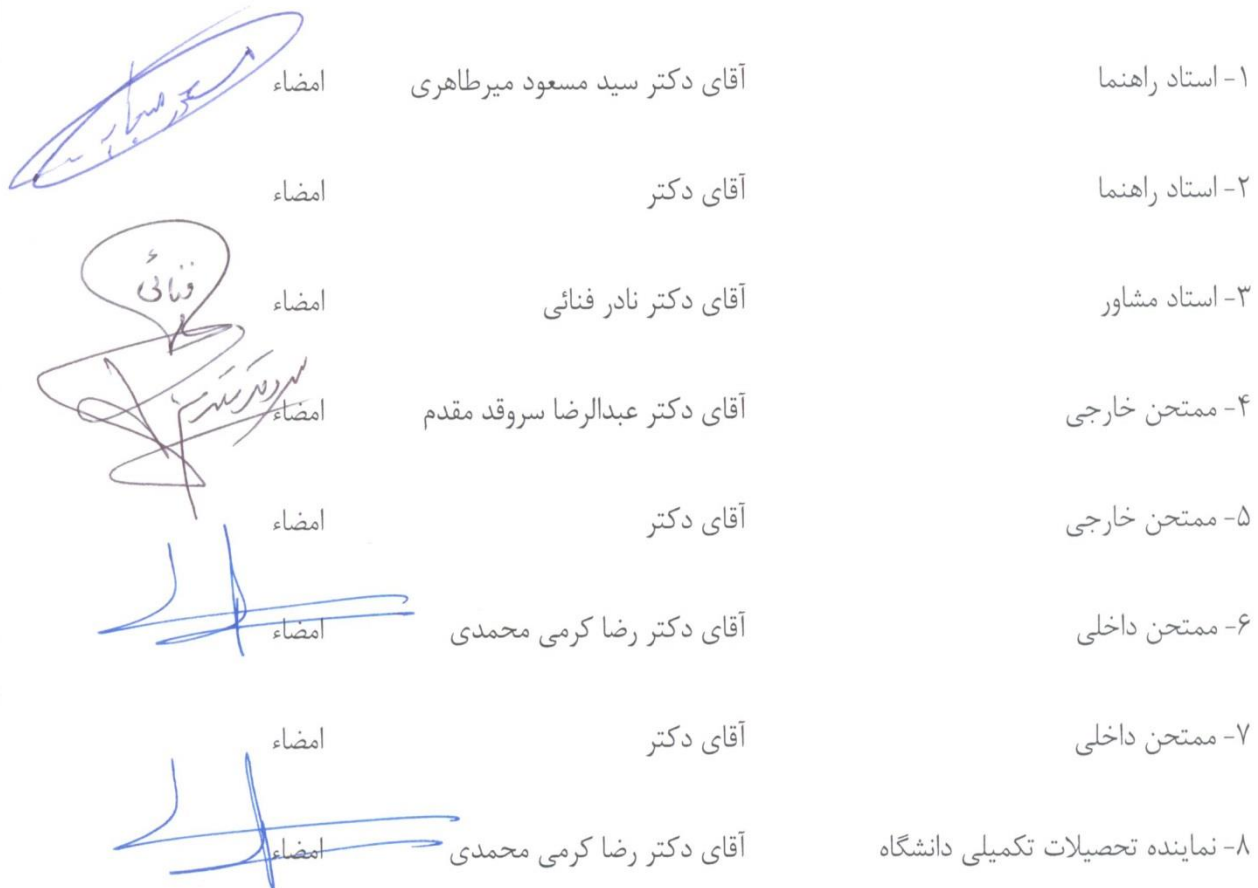 ۱- استاد راهنما آقای دکتر سید مسعود میرطاهری امضاء
۲- استاد راهنما آقای دکتر امضاء
۳- استاد مشاور آقای دکتر نادر فنائی امضاء
فنائی
۴- ممتحن خارجی آقای دکتر عبدالرضا سروقد مقدم امضاء
۵- ممتحن خارجی آقای دکتر امضاء
۶- ممتحن داخلی آقای دکتر رضا کرمی محمدی امضاء
۷- ممتحن داخلی آقای دکتر امضاء
۸- نماینده تحصیلات تکمیلی دانشگاه آقای دکتر رضا کرمی محمدی امضاء